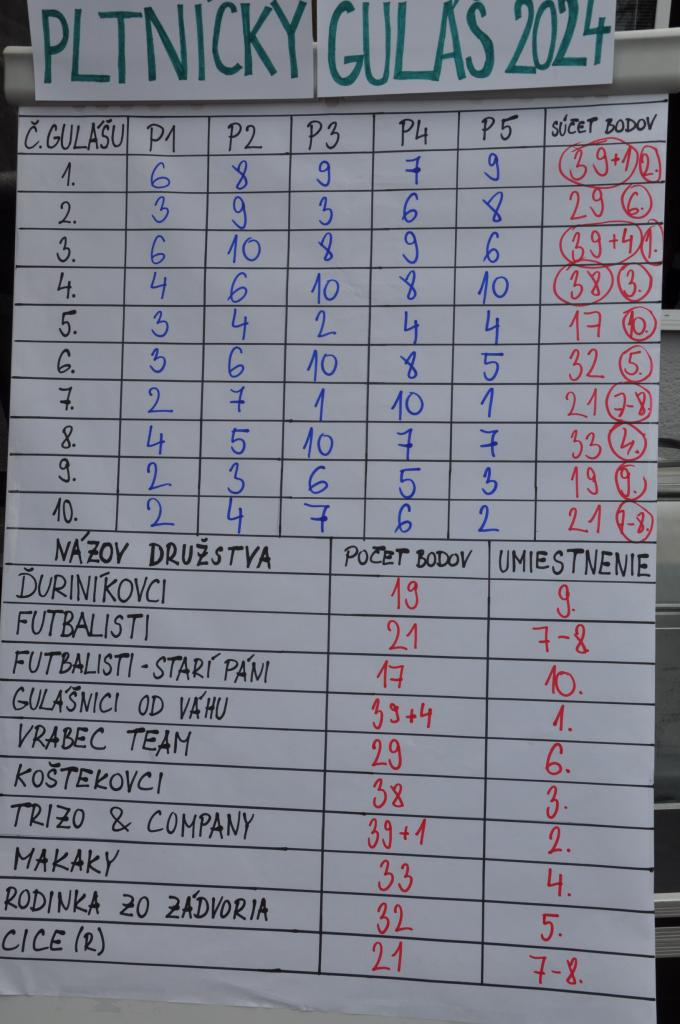 PLTNÍČKY GULÁŠ 2024
Č. GULÁŠU P1 P2 P3 P4 P5 SÚČET BODOV
1. 6 8 9 7 9 39+1 2.
2. 3 9 3 6 8 29 6.
3. 6 10 8 9 6 39+4 1.
4. 4 6 10 8 10 38 3.
5. 3 4 2 4 4 17 10.
6. 3 6 10 8 5 32 5.
7. 2 7 1 10 1 21 7-8.
8. 4 5 10 7 7 33 4.
9. 2 3 6 5 3 19 9.
10. 2 4 7 6 2 21 7-8.
NÁZOV DRUŽSTVA POČET BODOV UMIESTNENIE
ĎURINÍKOVCI 19 9.
FUTBALISTI 21 7-8
FUTBALISTI-STARÍ PÁNI 17 10.
GULÁŠNICI OD VÁHU 39+4 1.
VRABEC TEAM 29 6.
KOŠTEKOVCI 38 3.
TRIZO & COMPANY 39+1 2.
MAKAKY 33 4.
RODINKA ZO ZÁDVORIA 32 5.
CICE (R) 21 7-8.